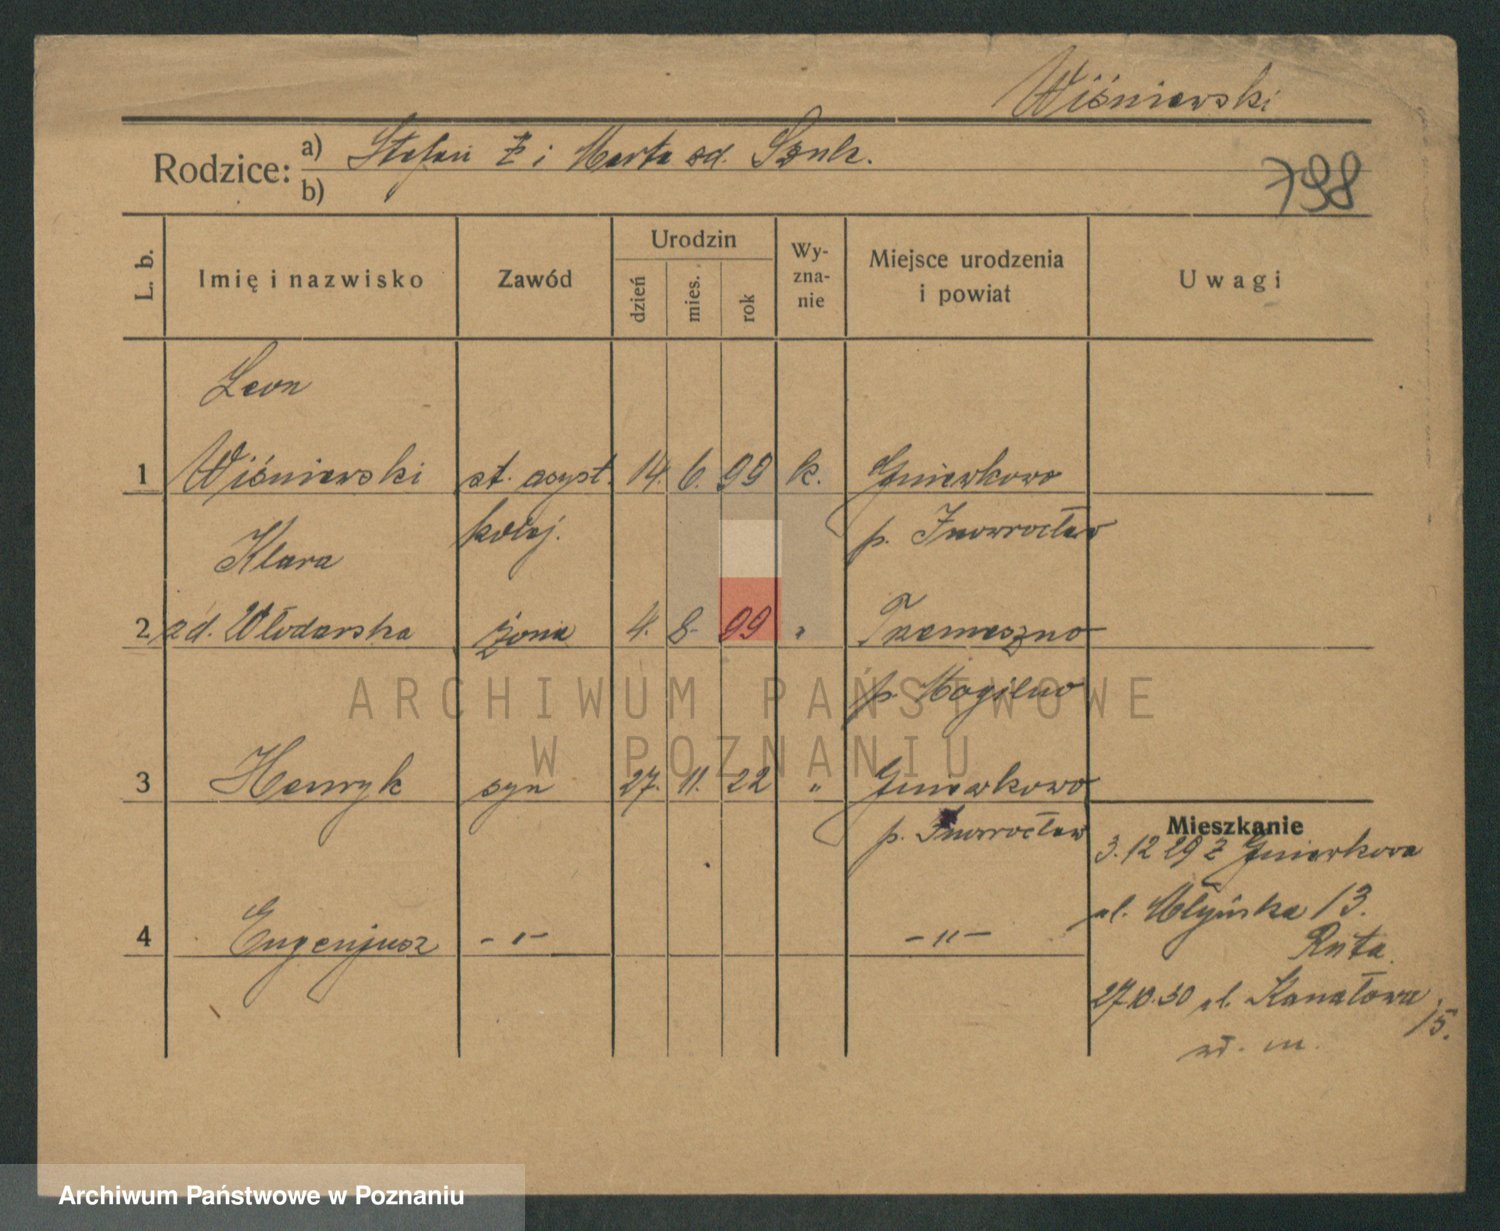 Wiśniewski
Rodzice: a) Stefan Ż i Marta zd. Szulc.
b)
798
L. b.
Imię i nazwisko
Zawód
Urodzin
dzień
mies.
rok
Wy-
zna-
nie
Miejsce urodzenia
i powiat
Uwagi
Leon
1 Wiśniewski st. asyst. 14. 6. 99 k. Gniewkowo
kolej. p. Inowrocław
Klara
2 zd. Włodarska żona 4. 8. 99 " Trzemeszno
p. Mogilno
3 Henryk syn 27. 11. 22 " Gniewkowo
p. Inowrocław
Mieszkanie
3.12 29 z Gniewkowa
ul. Młyńska 13.
4 Eugenjusz -"- -"-
Ruta.
27.10.30 ul. Kanałowa
15.
wł. m.
ARCHIWUM PAŃSTWOWE
W POZNANIU
Archiwum Państwowe w Poznaniu